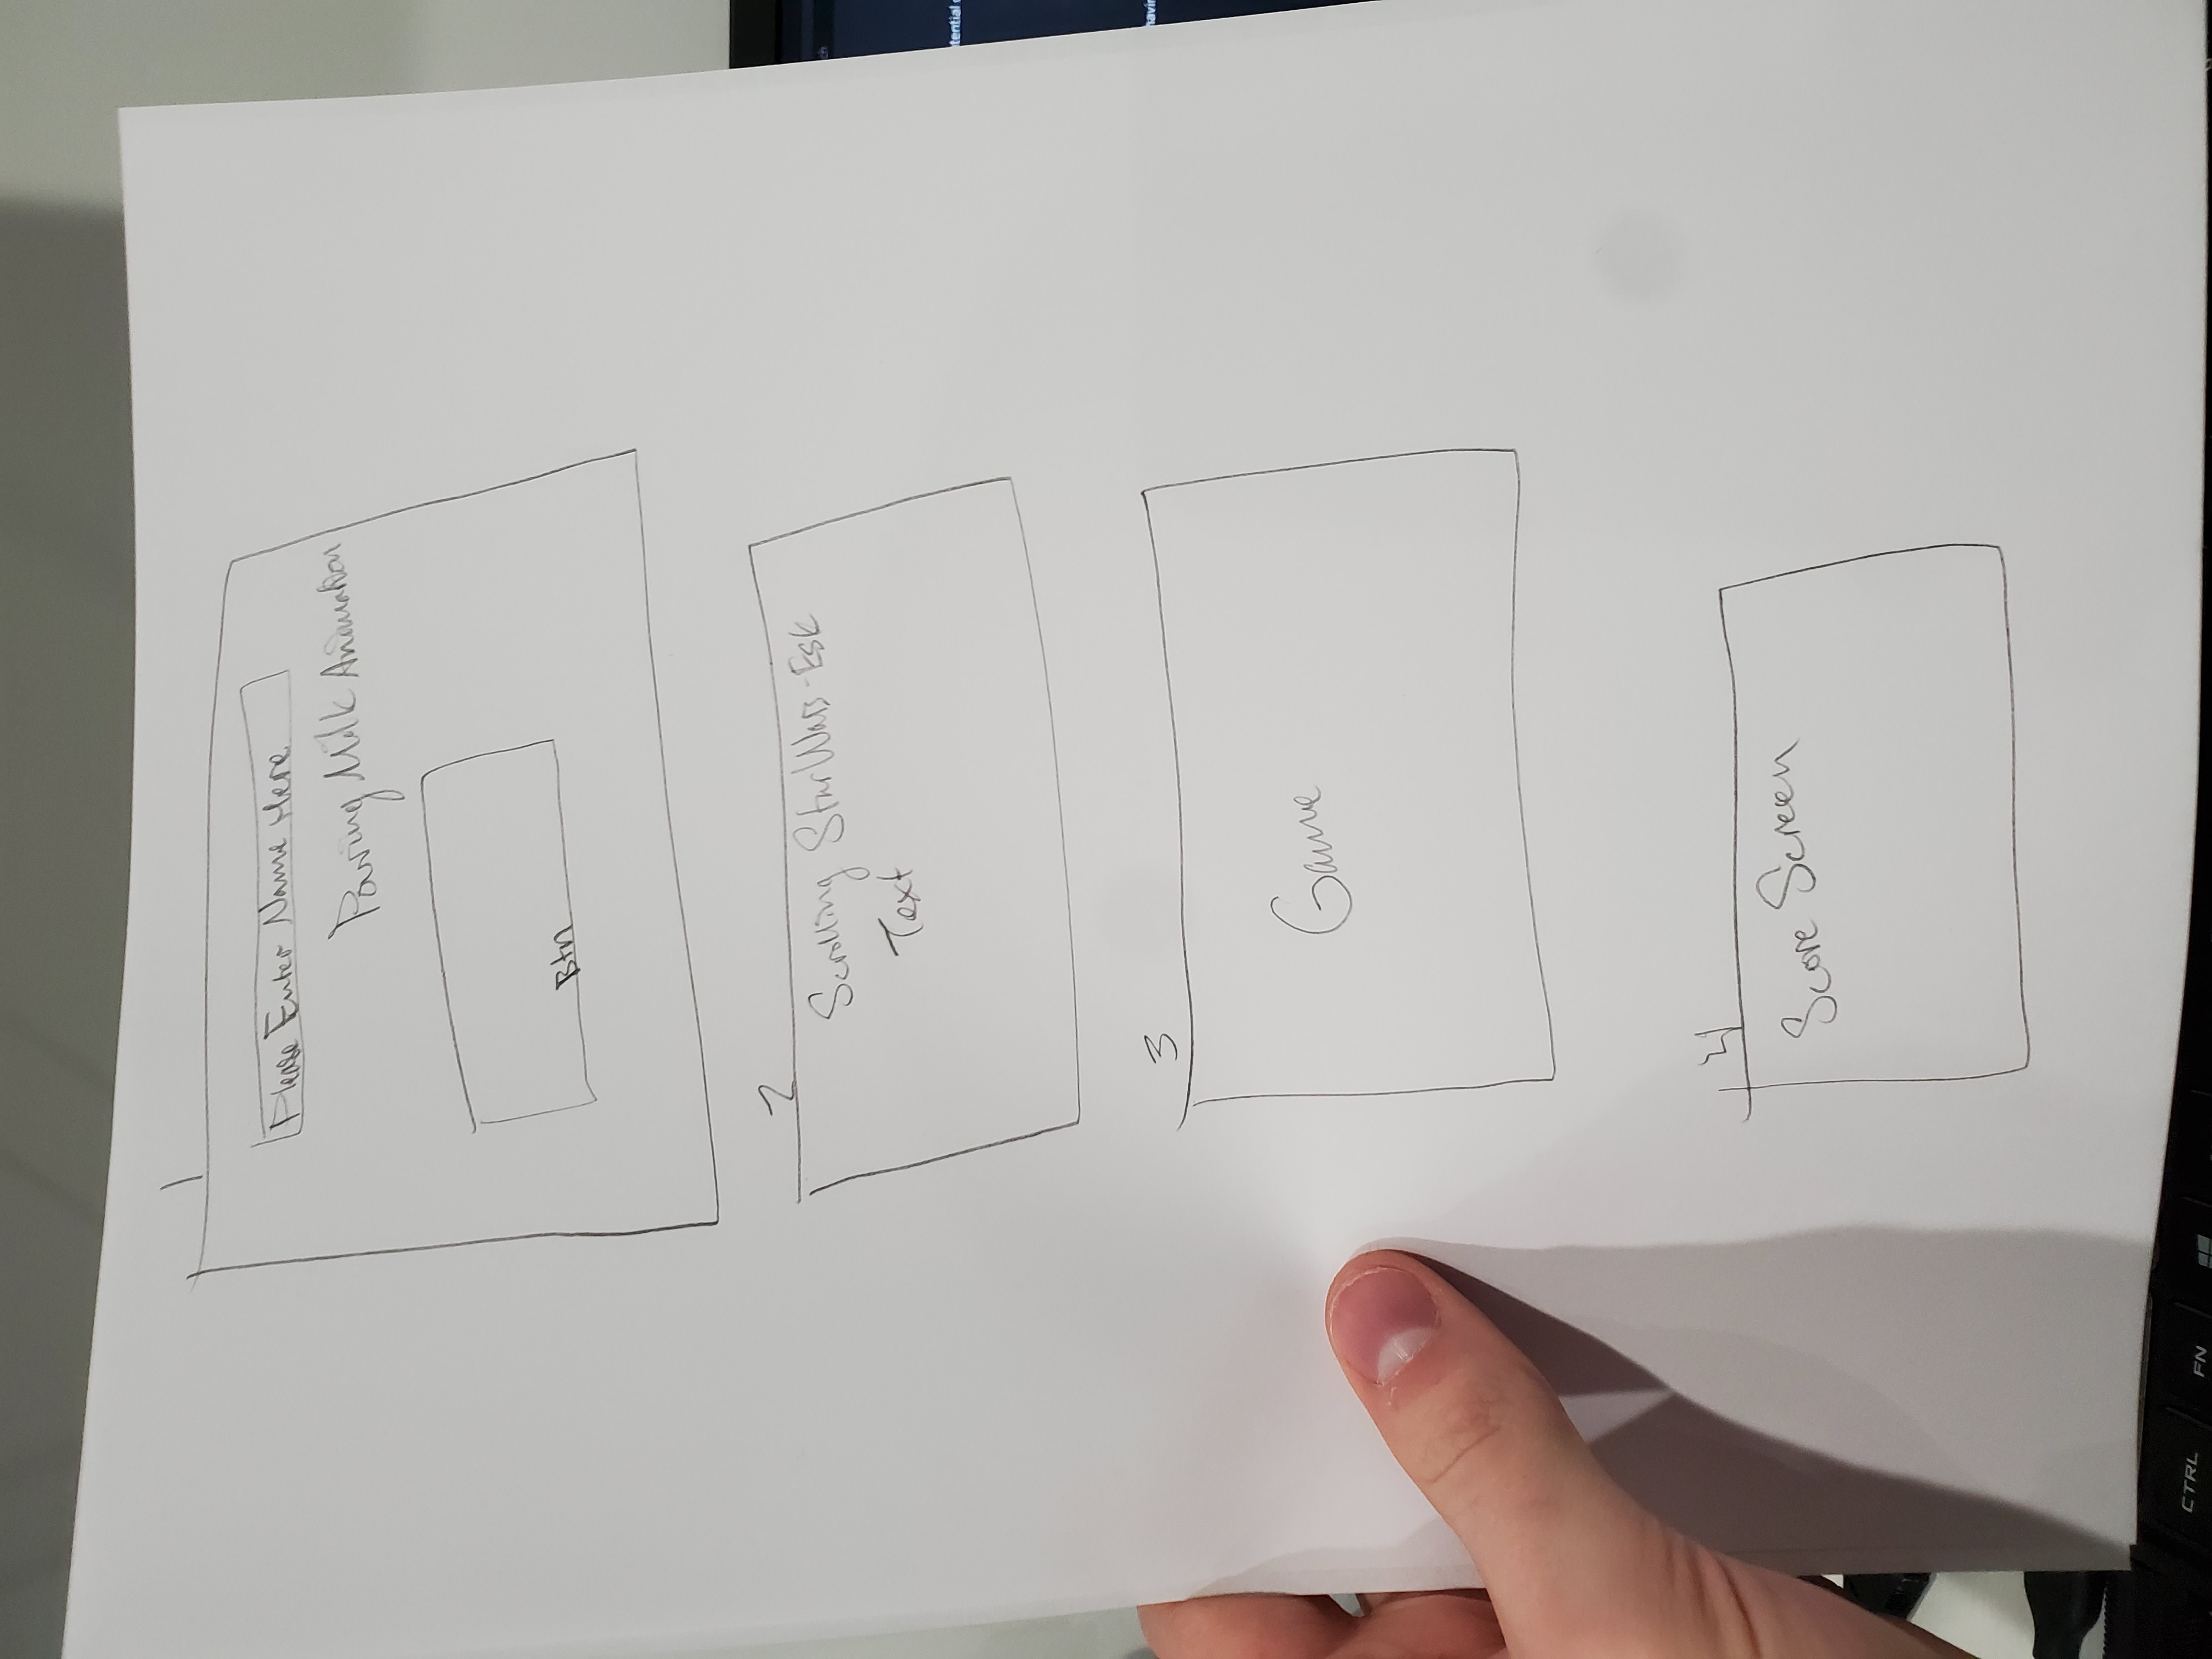 1
Please Enter Name Here
Pouring Milk Animation
Btn
2
Scrolling StarWars-Esk
Text
3
Game
4
Score Screen
ch
tential
havin
CTRL
FN